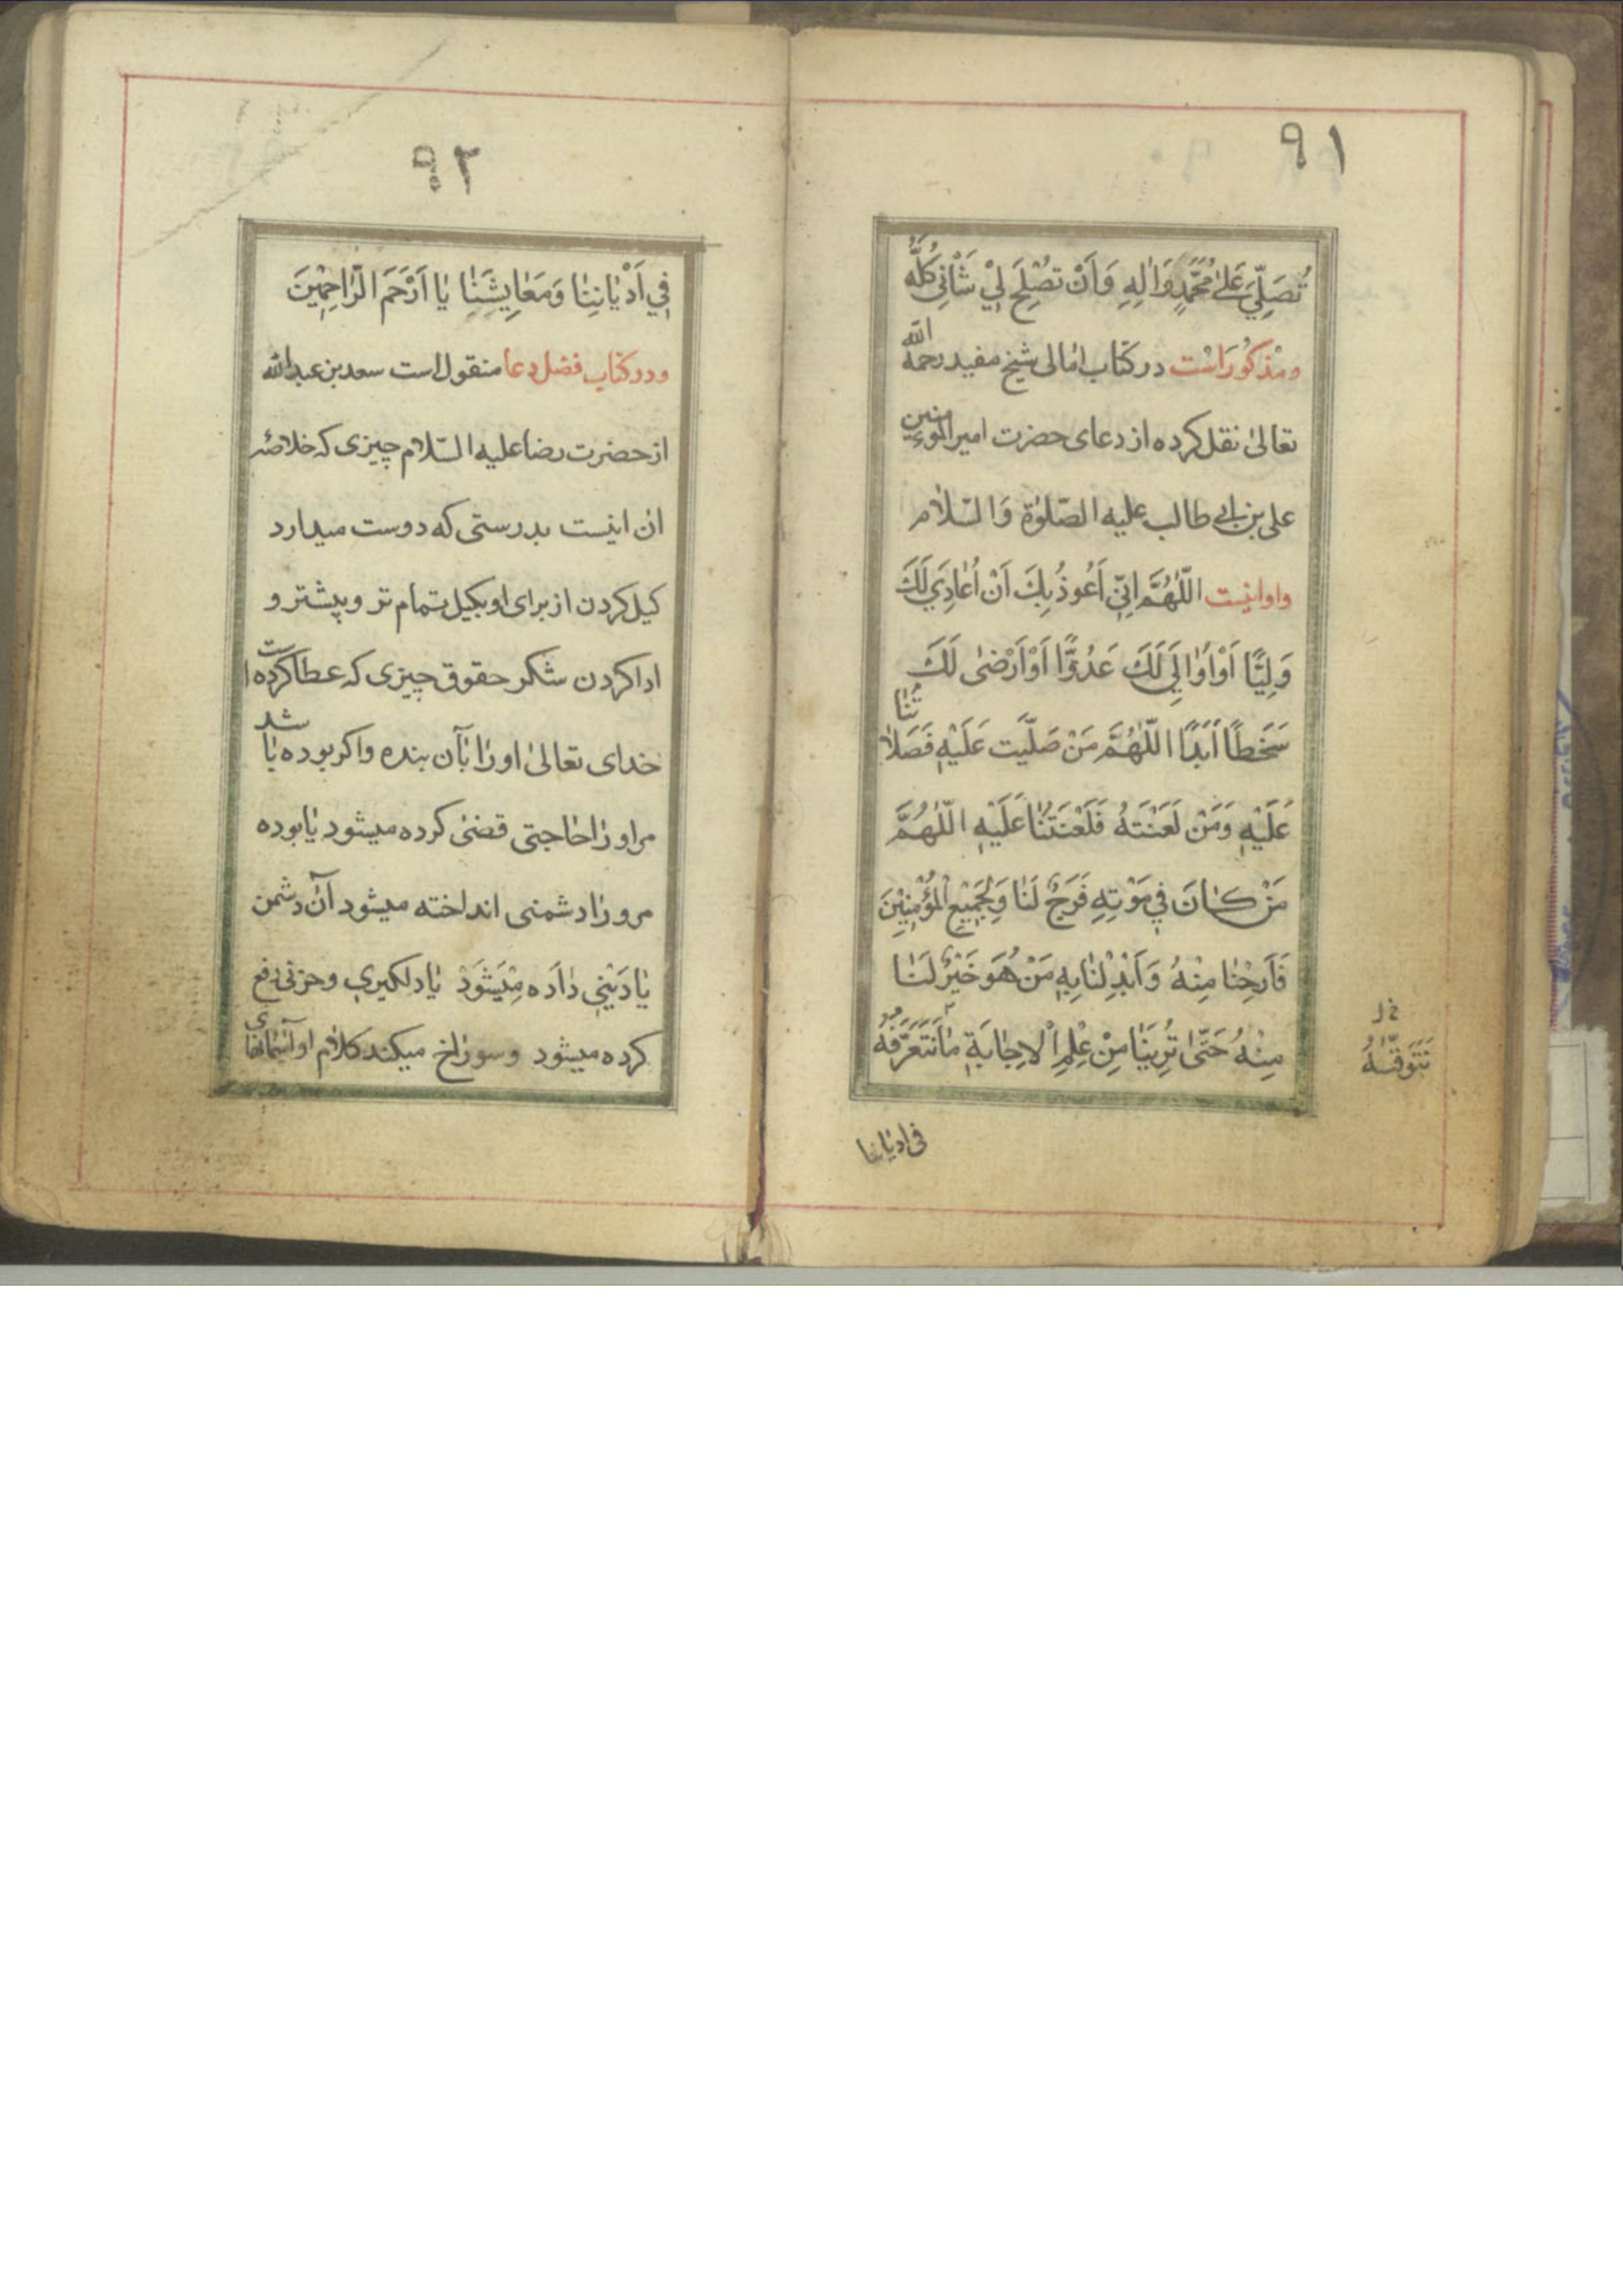 ٩١
تُصَلِّيَ عَلىٰ مُحَمَّدٍ وَاٰلِهِ وَاَنْ تُصْلِحَ لِيْ شَأْنِي كُلَّهُ
ومذكوراست در كتاب امالى شيخ مفيد رحمه الله
تعالىٰ نقل كرده از دعاى حضرت امير المؤمنين
على بن ابي طالب عليه الصّلوٰة وَالسّلام
واو اينست اللّٰهُمَّ اِنّي اَعُوذُ بِكَ اَنْ اُعٰادِيَ لَكَ
وَلِيًّا اَوْ اُوٰالِيَ لَكَ عَدُوًّا اَوْ اَرْضىٰ لَكَ
سَخَطًا اَبَدًا اللّٰهُمَّ مَنْ صَلَّيْت عَلَيْهِ فَصَلاٰتُنٰا
عَلَيْهِ وَمَنْ لَعَنْتَهُ فَلَعْنَتُنٰا عَلَيْهِ اللّٰهُمَّ
مَنْ كٰانَ فِي مَوْتِهِ فَرَجٌ لَنٰا وَلِجَمِيْعِ الْمُؤْمِنِيْنَ
فَاَرِحْنٰا مِنْهُ وَاَبْدِلْنٰا بِهِ مَنْ هُوَ خَيْرٌ لَنٰا
مِنْهُ حَتّىٰ تُرِيَنٰا مِنْ عِلْمِ الْاِجٰابَةِ مٰا نَتَعَرَّفُهُ
خ ل
نَتَوَقَّــهُ
فى اديٰاننا
٩٢
فِي اَدْيٰانِنٰا وَمَعٰايِشِنٰا يٰا اَرْحَمَ الرّٰاحِمِيْنَ
ودر كتاب فضل دعا منقول است سعد بن عبد الله
از حضرت رضا عليه السّلام چيزى كه خلاصهٔ
ان اينست بدرستى كه دوست ميدارد
كيل كردن از براى او بكيل تمام تر و پيشتر و
ادا كردن شكر حقوق چيزى كه عطا كرده است
خداى تعالىٰ او رٰا بآن بنده واكر بوده باشد
مراو رٰا حٰاجتى قضىٰ كرده ميشود يٰا بوده
مرو رٰا دشمنى انداخته ميشود آن دشمن
يٰا دَيْنِي دٰادَه مِيْشَوَدْ يٰا دلكيري وحزنى رفع
كرده ميشود وسورٰاخ ميكند كلام او آسمانهاى